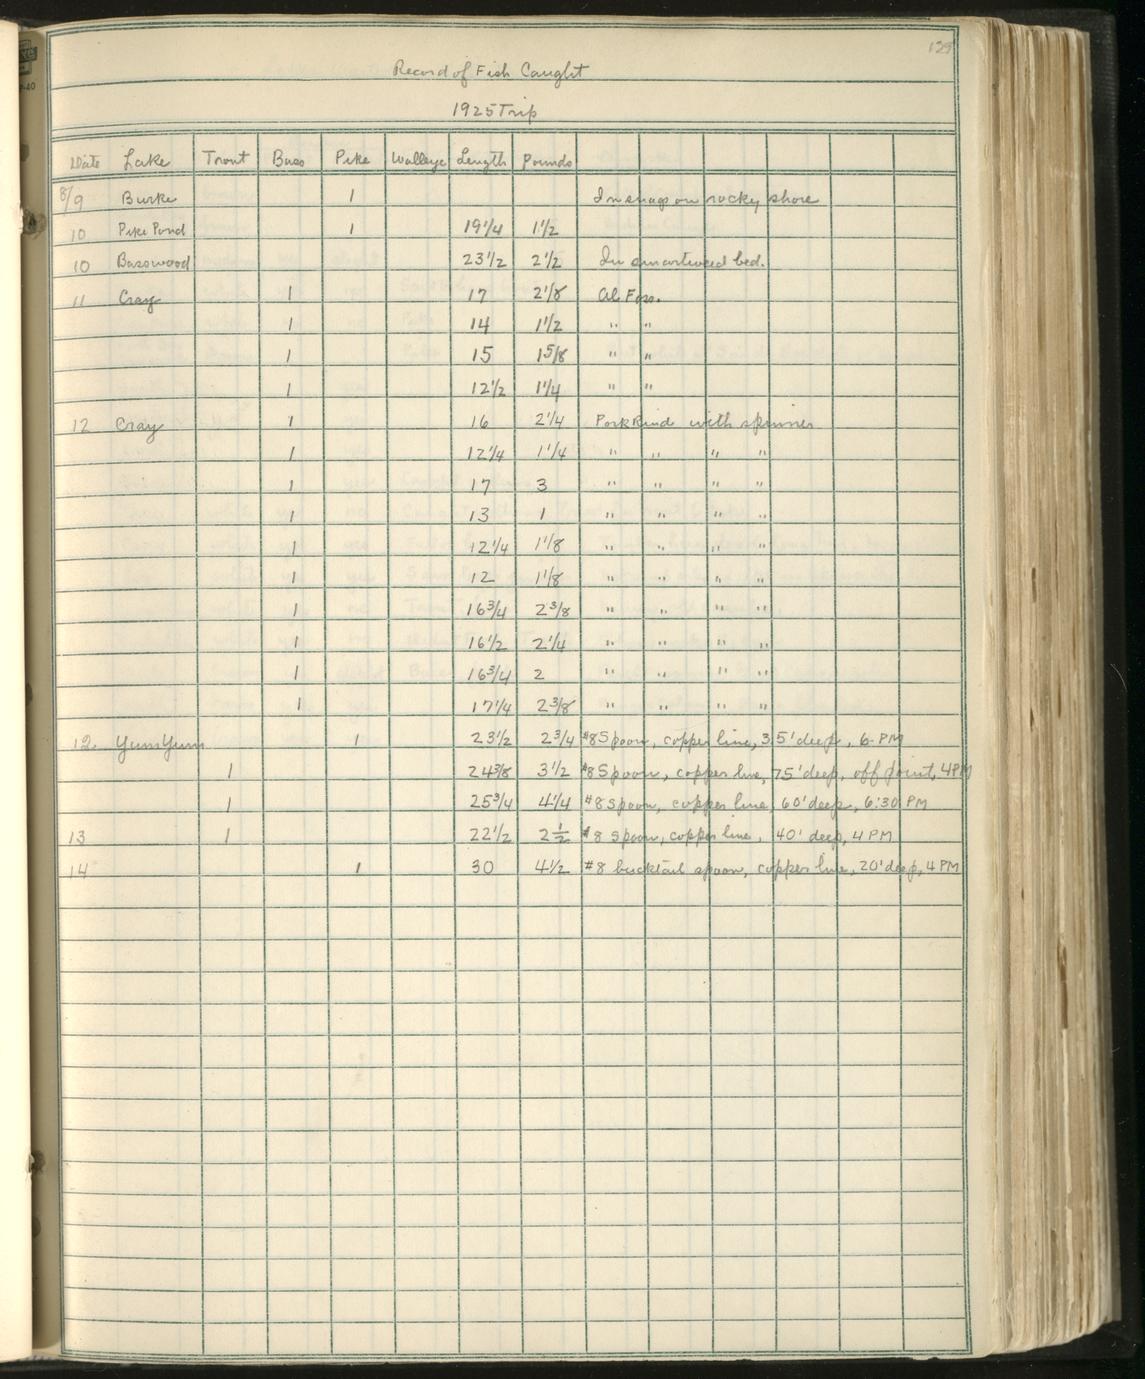 129
Record of Fish Caught
1925 Trip
Date Lake Trout Bass Pike Walleye Length Pounds
8/9 Burke 1 In snag on rocky shore
10 Pike Pond 1 19 1/4 1 1/2
10 Basswood 23 1/2 2 1/2 In smartweed bed.
11 Cray 1 17 2 1/8 Al Foss.
1 14 1 1/2 " "
1 15 1 5/8 " "
1 12 1/2 1 1/4 " "
12 Cray 1 16 2 1/4 Pork Rind with spinner
1 12 1/4 1 1/4 " " " "
1 17 3 " " " "
1 13 1 " " " "
1 12 1/4 1 1/8 " " " "
1 12 1 1/8 " " " "
1 16 3/4 2 3/8 " " " "
1 16 1/2 2 1/4 " " " "
1 16 3/4 2 " " " "
1 17 1/4 2 3/8 " " " "
12 YumYum 1 23 1/2 2 3/4 #8 Spoon, copper line, 35' deep, 6 PM
1 24 3/8 3 1/2 #8 Spoon, copper line, 75' deep, off point, 4 PM
1 25 3/4 4 1/4 #8 spoon, copper line, 60' deep, 6:30 PM
13 1 22 1/2 2 1/2 #8 spoon, copper line, 40' deep, 4 PM
14 1 30 4 1/2 #8 bucktail spoon, copper line, 20' deep, 4 PM